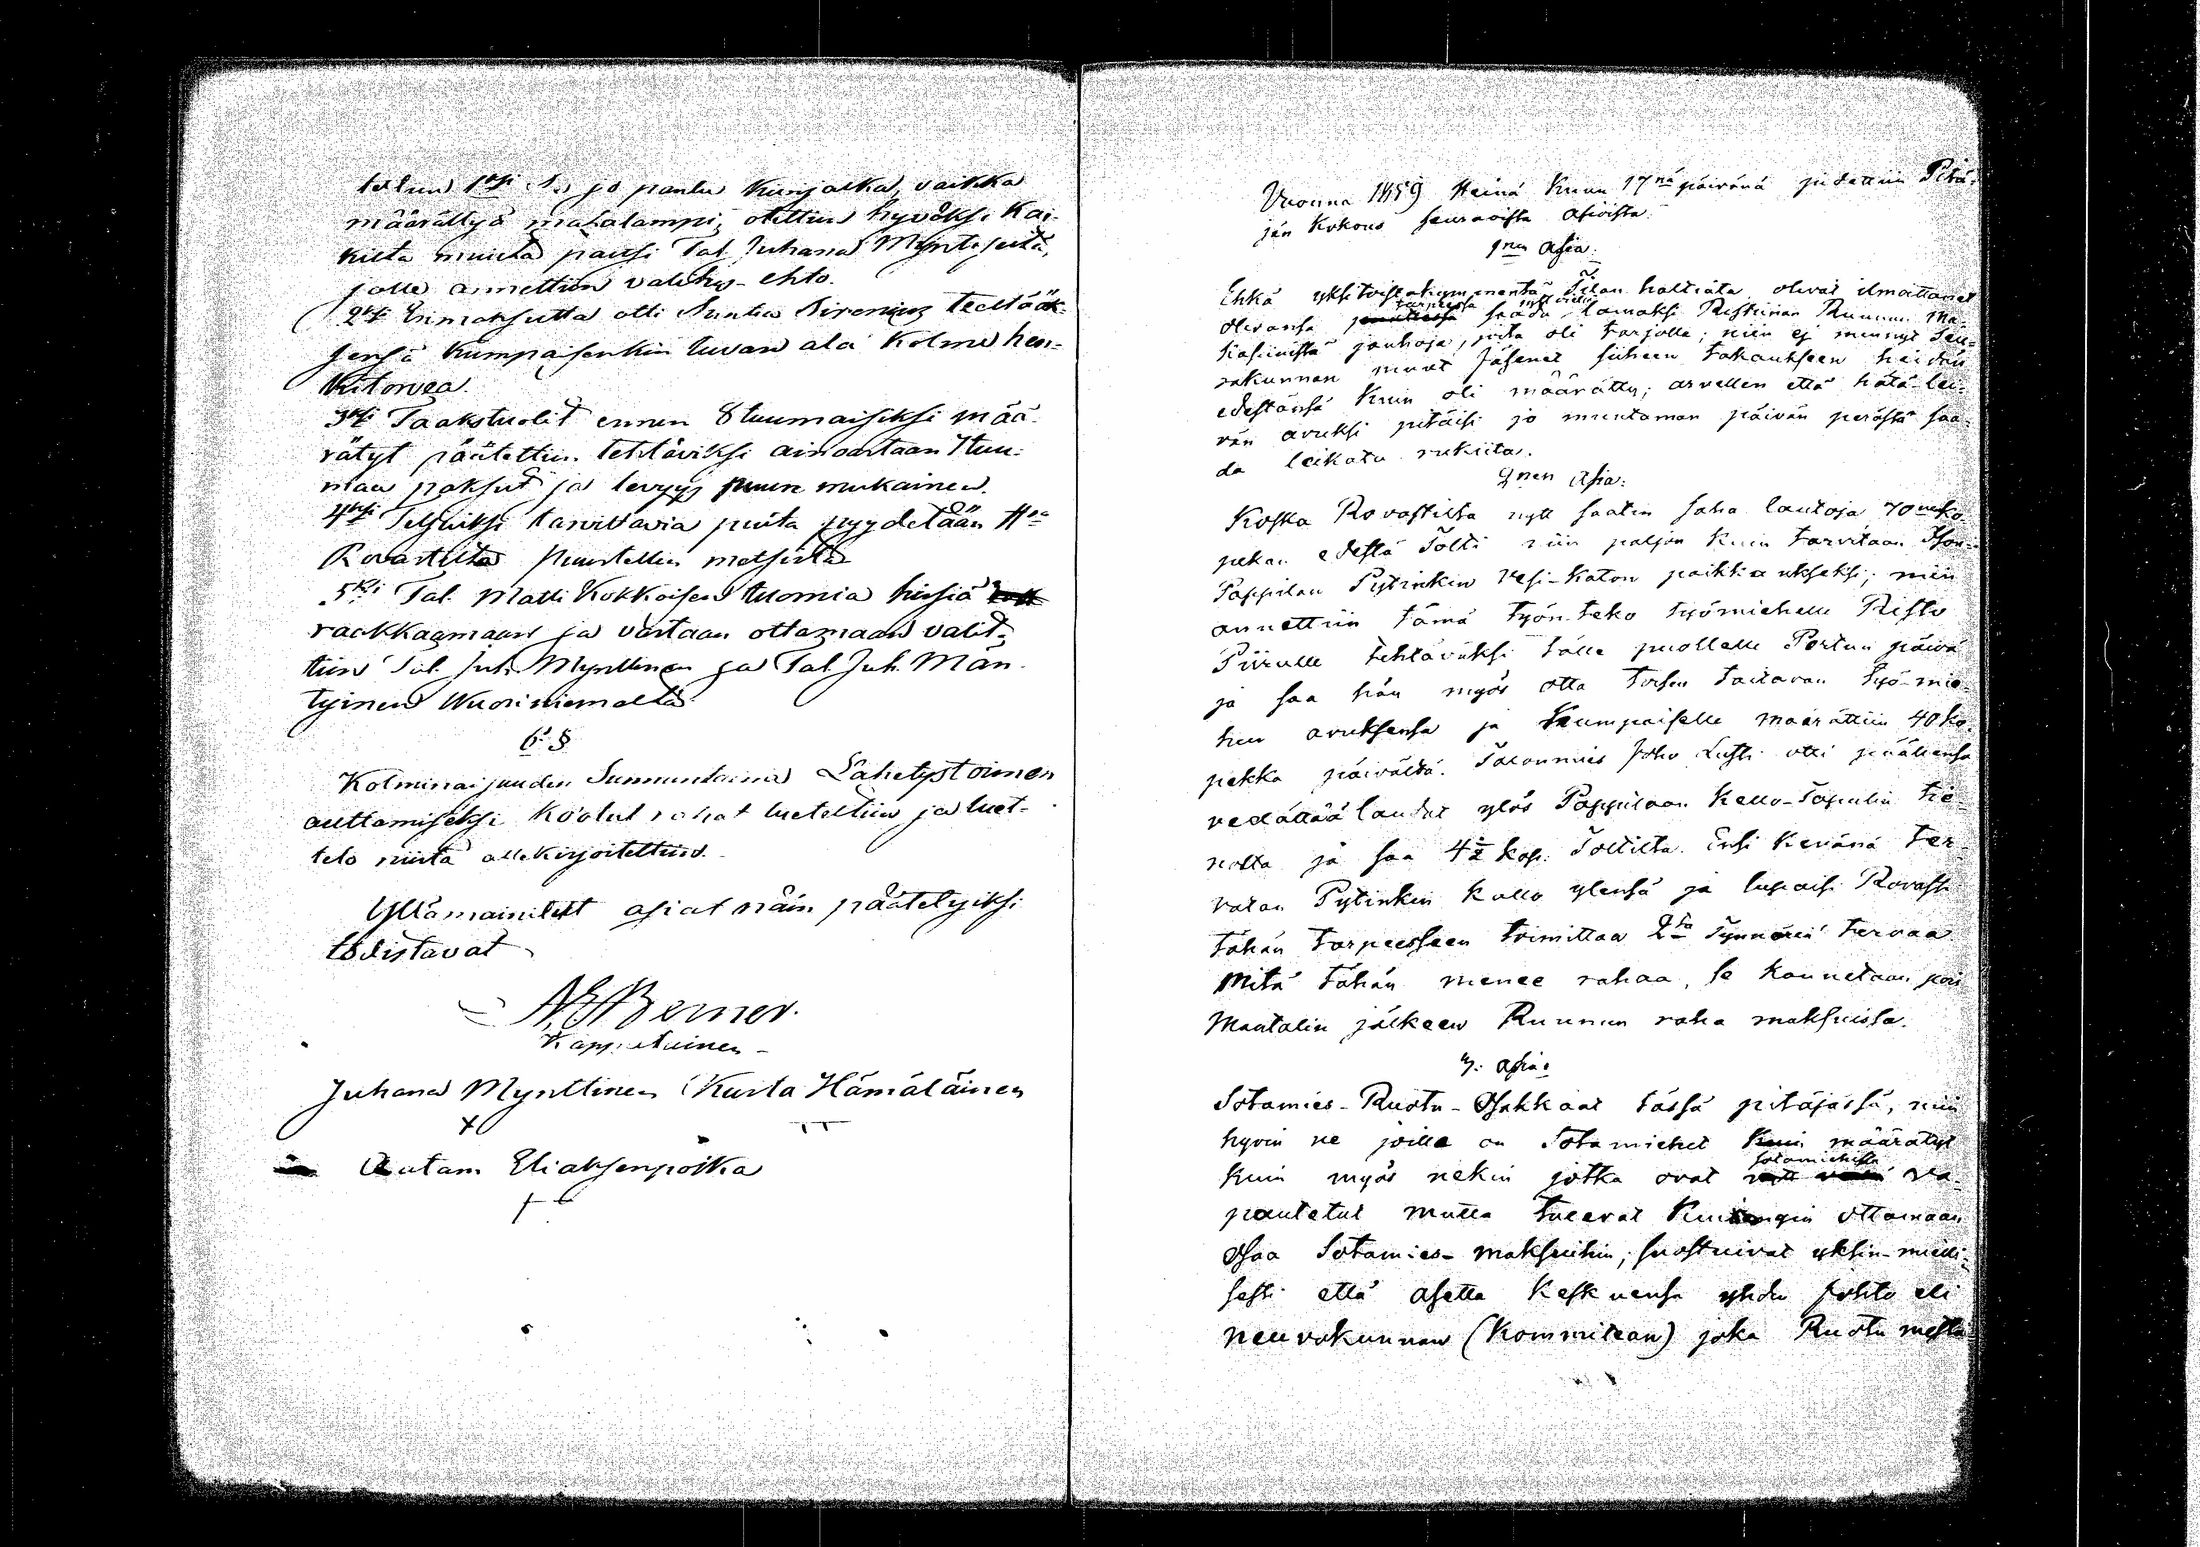 tellun 1ksi jo pantu Kunjalka, vaikka
määrättyä matalampi, otettiin hyväksi Kai-
kilta muilta paitsi Tal. Juhana Mynttiseltä,
jolle annettiin valitus-ehto.
2ksi Enmaksutta otti Suntio Sirenius teettääk-
sensä kumpaisenkin luvan ala Kolme hen-
kitorvea.
3ksi Taakstuolit ennen 8 tuumaisiksi mää-
rätyt päätettiin tehtäviksi ainoastaan 7 tuu-
maa paksut ja levyys puun mukainen.
4ksi Teljiksi tarvittavia puita pyydetään Hra
Rovastilta Puustellin metsistä
5ksi Tal. Matti Kokkoisen tuomia hirsiä
raakkaamaan ja vastaan ottamaan valit-
tiin Tal. Juh. Mynttinen ja Tal. Juh. Män-
tyinen Wuoriniemeltä
6. §
Kolminaisuuden Sunnuntaina Lähetystoimen
auttamiseksi Kootut rahat lueteltiin ja luet-
telo niistä allekirjoitettiin.
Yllämainitut asiat näin päätetyiksi
todistavat
Berner.
Kappalainen
Juhana Mynttinen Kusta Hämäläinen
Aatam Eliaksenpoika
Vuonna 1859 Heinä Kuun 17nä päivänä pidettiin Pitä-
jän Kokous seuraavista asioista.
1nen Asia.
Ehkä yksitoistakymmentä Tilan haltiata olivat ilmoittanet
olevansa tarpeessa nytt vielä saada lainaksi Ristiinan Ruunun Ma-
kasiinista jauhoja, joita oli tarjolla; niin ej mennyt Seu-
rakunnan muut Jäsenet siiheen takaukseen heidän
edestänsä kuin oli määrätty; arvellen että hätä-lei-
vän avuksi pitäisi jo muutaman päivän perästä saa-
da leikata rukiita.
2nen Asia:
Koska Rovastilta nytt saatin saha lautoja 70 neko-
pekan edestä Tolti niin paljon kuin tarvitaan Ison-
Pappilan Pytinkin Vesi-Katon paikkaukseksi; niin
annettiin tämä työn-teko työmiehelle Risto
Piirulle tehtäväksi tälle puollelle Pertun päivä
ja saa hän myös otta toisen taitavan työ-mie-
hen avuksensa ja kumpaiselle määrättiin 40 ko-
pekka päivältä. Talonmies Joho Lusti otti päällensä
vedättää laudat ylös Pappilaan Kello-Tapulin tie-
nolta ja saa 4½ kop. Toltilta. Ensi Kevänä ter-
vataan Pytinkin Katto ylensä ja lupaisi Rovasti
tähän tarpeesseen toimittaa 2ta Tynnöriä tervaa
Mitä tähän menee rahaa, se kannetaan pois
Manttalin jälkeen Ruunun raha maksuissa.
3. Asia:
Sotamies-Ruotu-Osakkaat tässä pitäjässä, niin
hyvin ne joilla on Sotamiehet määrätyt
kuin myös nekin jotka ovat sotamiehistä va-
pautetut mutta tulevat kuitengin ottamaan
Osaa Sotamies-maksuihin; suostuivat yksin-mieli-
sesti että asetta keskuensa yhdu johto eli
neuvokunnan (Kommitean) joka Ruotu mesta